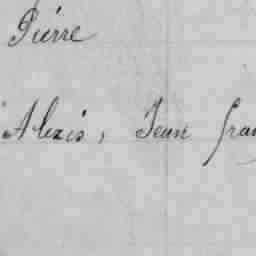 Pierre
Alexis, Jean fran